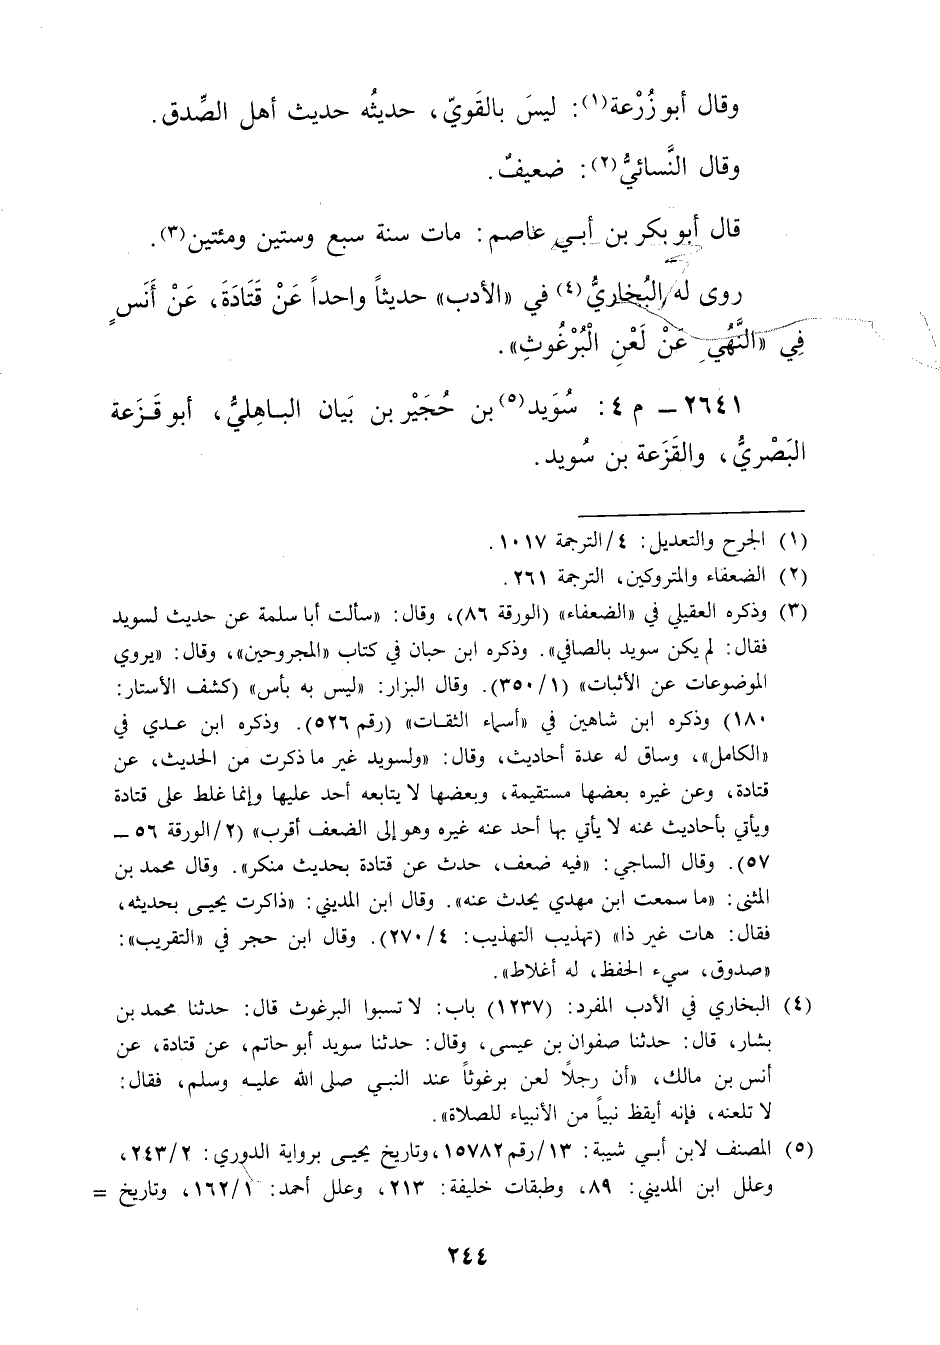 وقال أبو زُرْعة(١): ليسَ بالقَويّ، حديثُه حديث أهل الصِّدق.
وقال النَّسائيُّ(٢): ضعيفٌ.
قال أبو بكر بن أبي عاصم: مات سنة سبع وستين ومئتين(٣).
روى له البُخاريُّ(٤) في «الأدب» حديثاً واحداً عَنْ قَتَادَةَ، عَنْ أَنَسٍ
فِي «النَّهُي عَنْ لَعْنِ الْبُرْغُوثِ».
٢٦٤١ - م ٤: سُوَيد(٥) بن حُجَيْر بن بَيان الباهليُّ، أبو قَزَعة
البَصْريُّ، والقَزَعة بن سُويد.
(١) الجرح والتعديل: ٤/الترجمة ١٠١٧.
(٢) الضعفاء والمتروكين، الترجمة ٢٦١.
(٣) وذكره العقيلي في «الضعفاء» (الورقة ٨٦)، وقال: «سألت أبا سلمة عن حديث لسويد
فقال: لم يكن سويد بالصافي». وذكره ابن حبان في كتاب «المجروحين»، وقال: «يروي
الموضوعات عن الأثبات» (١/ ٣٥٠). وقال البزار: «ليس به بأس» (كشف الأستار:
١٨٠) وذكره ابن شاهين في «أسماء الثقات» (رقم ٥٢٦). وذكره ابن عدي في
«الكامل»، وساق له عدة أحاديث، وقال: «ولسويد غير ما ذكرت من الحديث، عن
قتادة، وعن غيره بعضها مستقيمة، وبعضها لا يتابعه أحد عليها وإنما غلط على قتادة
ويأتي بأحاديث عنه لا يأتي بها أحد عنه غيره وهو إلى الضعف أقرب» (٢/الورقة ٥٦ -
٥٧). وقال الساجي: «فيه ضعف، حدث عن قتادة بحديث منكر». وقال محمد بن
المثنى: «ما سمعت ابن مهدي يحدث عنه». وقال ابن المديني: «ذاكرت يحيى بحديثه،
فقال: هات غير ذا» (تهذيب التهذيب: ٤/ ٢٧٠). وقال ابن حجر في «التقريب»:
«صدوق، سيء الحفظ، له أغلاط».
(٤) البخاري في الأدب المفرد: (١٢٣٧) باب: لا تسبوا البرغوث قال: حدثنا محمد بن
بشار، قال: حدثنا صفوان بن عيسى، وقال: حدثنا سويد أبو حاتم، عن قتادة، عن
أنس بن مالك، «أن رجلاً لعن برغوثاً عند النبي صلى الله عليه وسلم، فقال:
لا تلعنه، فإنه أيقظ نبياً من الأنبياء للصلاة».
(٥) المصنف لابن أبي شيبة: ١٣/رقم ١٥٧٨٢، وتاريخ يحيى برواية الدوري: ٢/ ٢٤٣،
وعلل ابن المديني: ٨٩، وطبقات خليفة: ٢١٣، وعلل أحمد: ١/ ١٦٢، وتاريخ =
٢٤٤